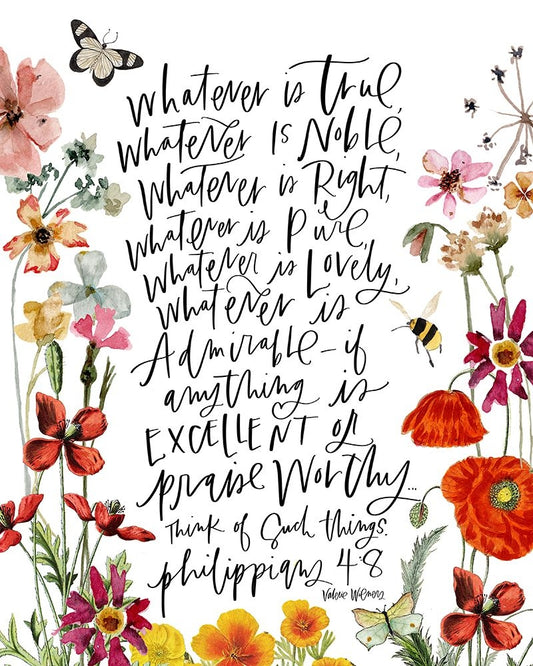 Whatever is True,
Whatever Is Noble,
Whatever is Right,
Whatever is Pure,
Whatever is Lovely,
whatever is
Admirable-if
anything is
EXCELLENT OR
praise Worthy...
Think of Such things.
philippians 4:8
Valerie Wieners